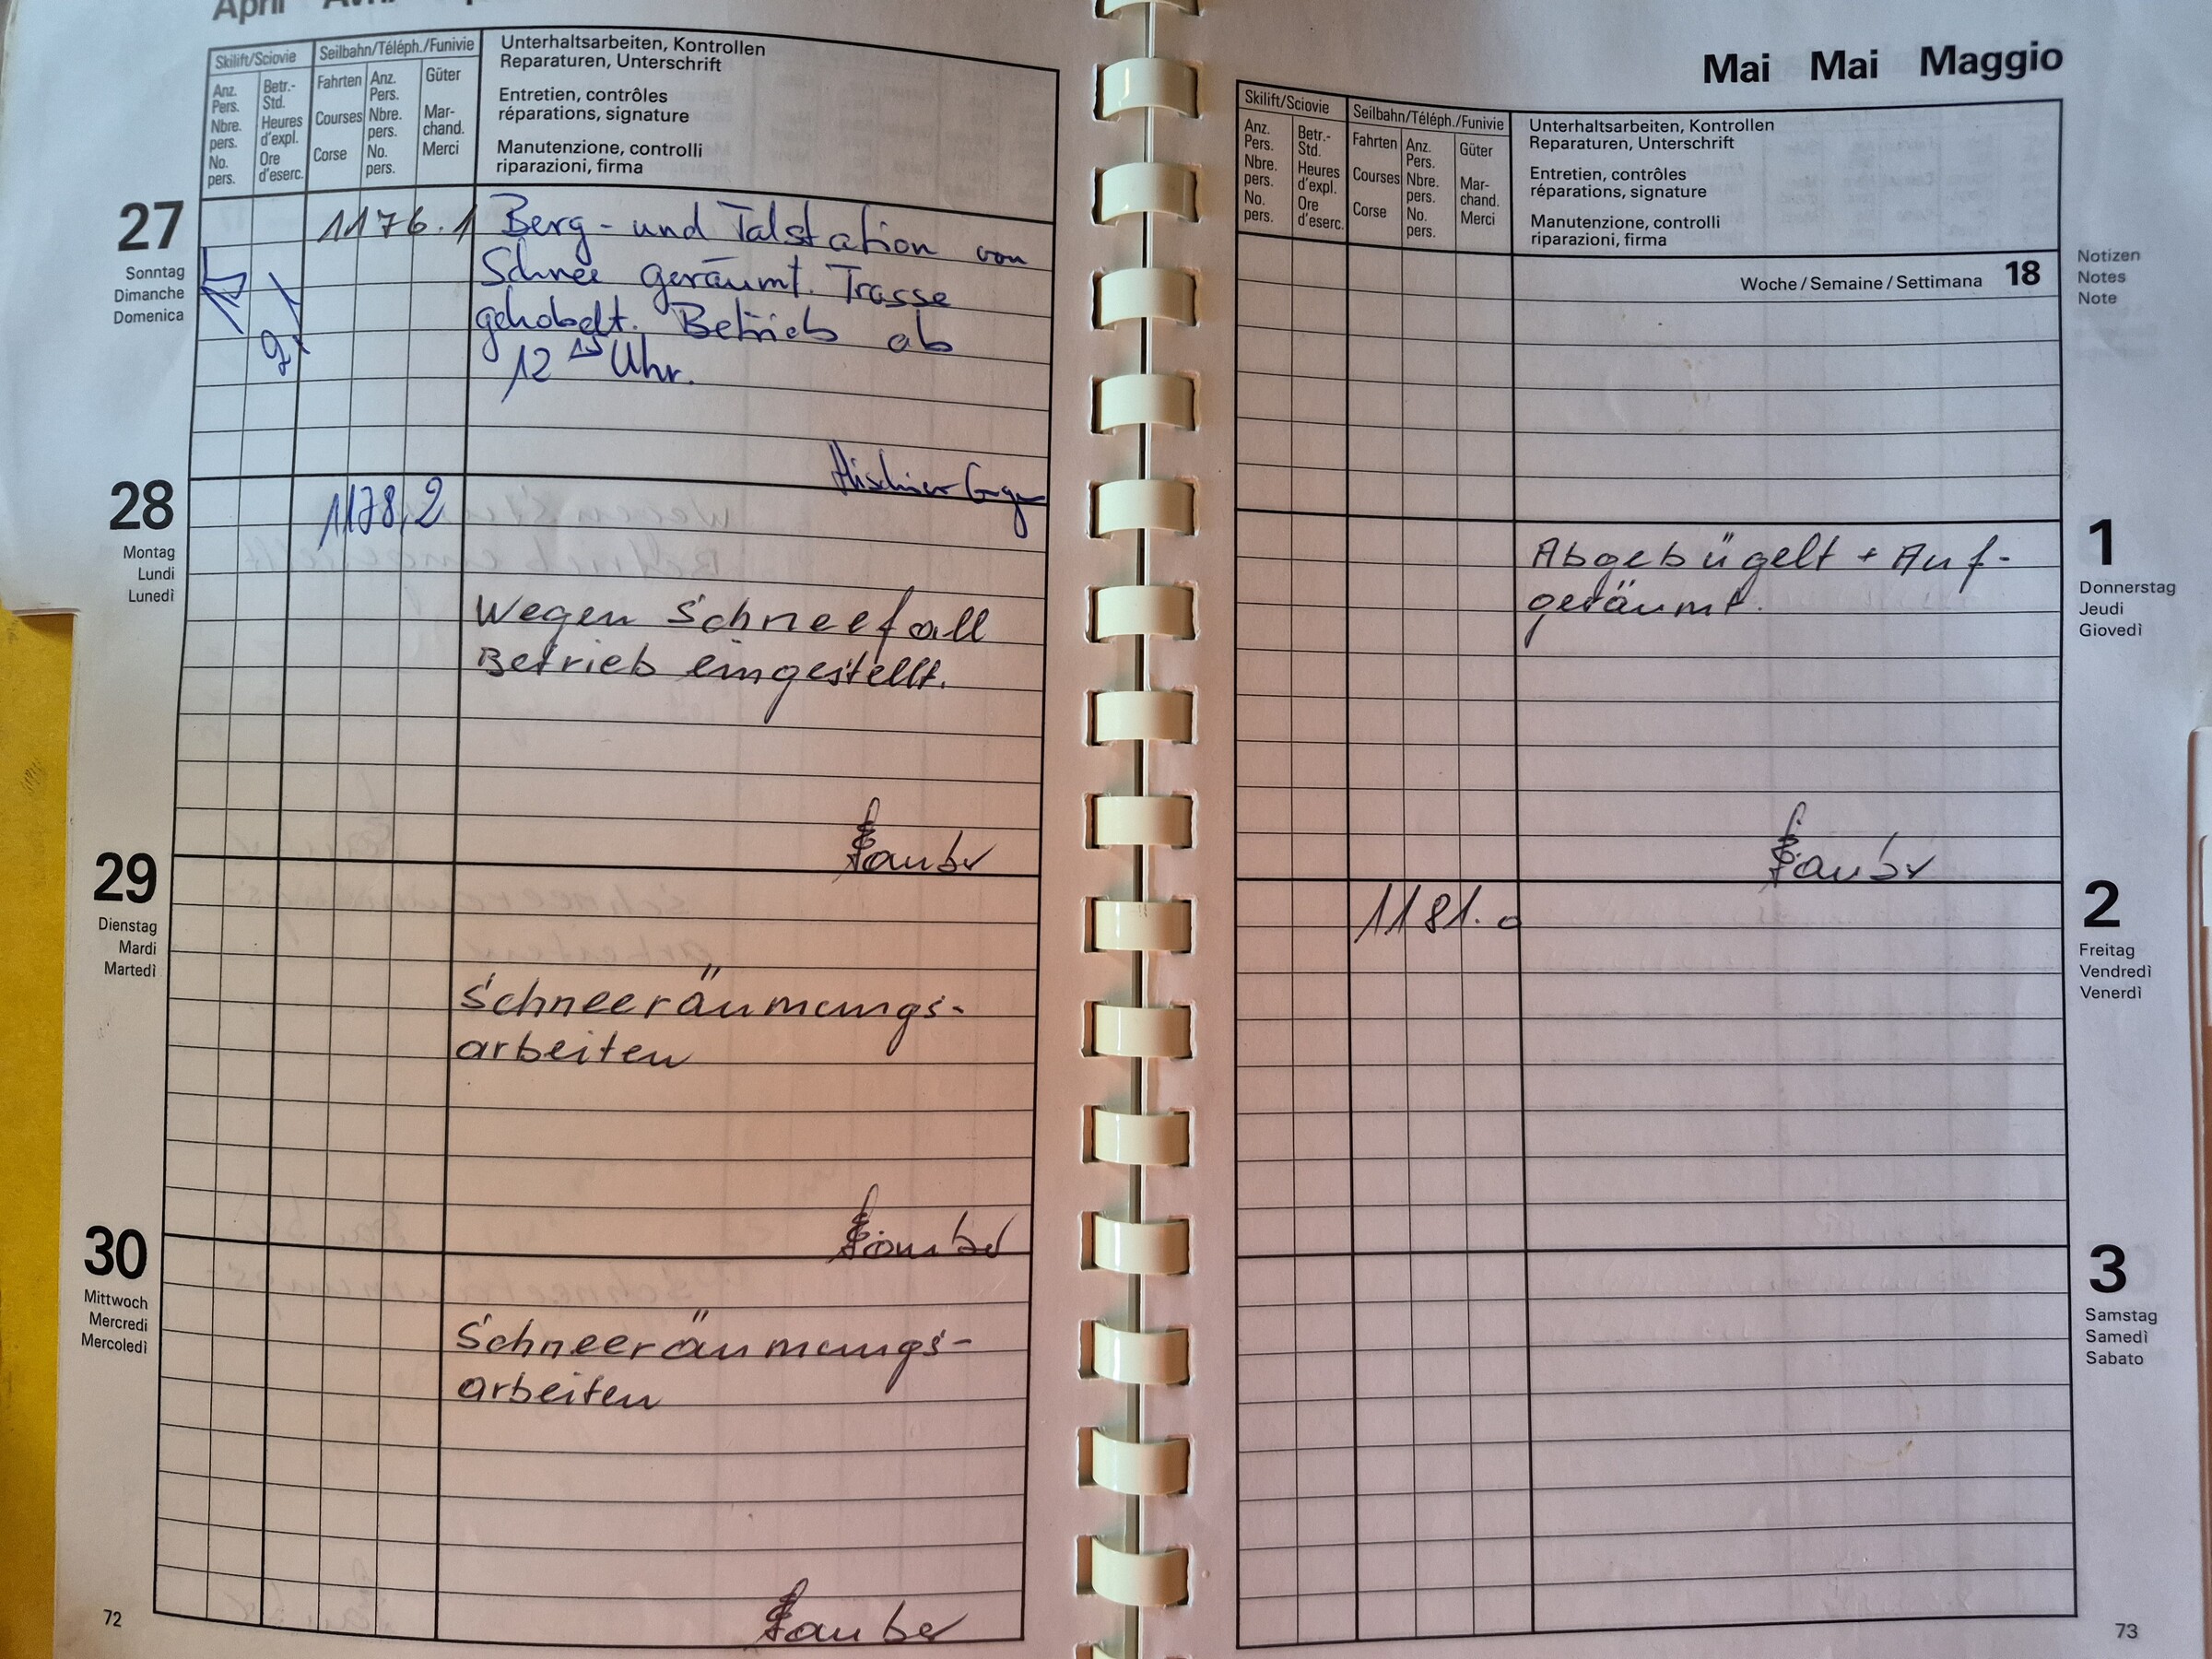 April
Skilift/Sciovie
Seilbahn/Téléph./Funivie
Anz.
Pers.
Nbre.
pers.
No.
pers.
Betr.-
Std.
Heures
d'expl.
Ore
d'eserc.
Fahrten
Courses
Corse
Anz.
Pers.
Nbre.
pers.
No.
pers.
Güter
Mar-
chand.
Merci
Unterhaltsarbeiten, Kontrollen
Reparaturen, Unterschrift
Entretien, contrôles
réparations, signature
Manutenzione, controlli
riparazioni, firma
27
Sonntag
Dimanche
Domenica
1176.1
Berg- und Talstation von
Schnee geräumt. Trasse
gehobelt. Betrieb ab
12 15 Uhr.
28
Montag
Lundi
Lunedì
1178,2
Wegen Schneefall
Betrieb eingestellt.
29
Dienstag
Mardi
Martedì
Schneeräumungs-
arbeiten
30
Mittwoch
Mercredi
Mercoledì
Schneeräumungs-
arbeiten
72
Mai Mai Maggio
Skilift/Sciovie
Seilbahn/Téléph./Funivie
Anz.
Pers.
Nbre.
pers.
No.
pers.
Betr.-
Std.
Heures
d'expl.
Ore
d'eserc.
Fahrten
Courses
Corse
Anz.
Pers.
Nbre.
pers.
No.
pers.
Güter
Mar-
chand.
Merci
Unterhaltsarbeiten, Kontrollen
Reparaturen, Unterschrift
Entretien, contrôles
réparations, signature
Manutenzione, controlli
riparazioni, firma
Woche/Semaine/Settimana 18
Notizen
Notes
Note
1
Donnerstag
Jeudi
Giovedì
Abgebügelt + Auf-
geräumt.
2
Freitag
Vendredì
Venerdì
1181.0
3
Samstag
Samedì
Sabato
73